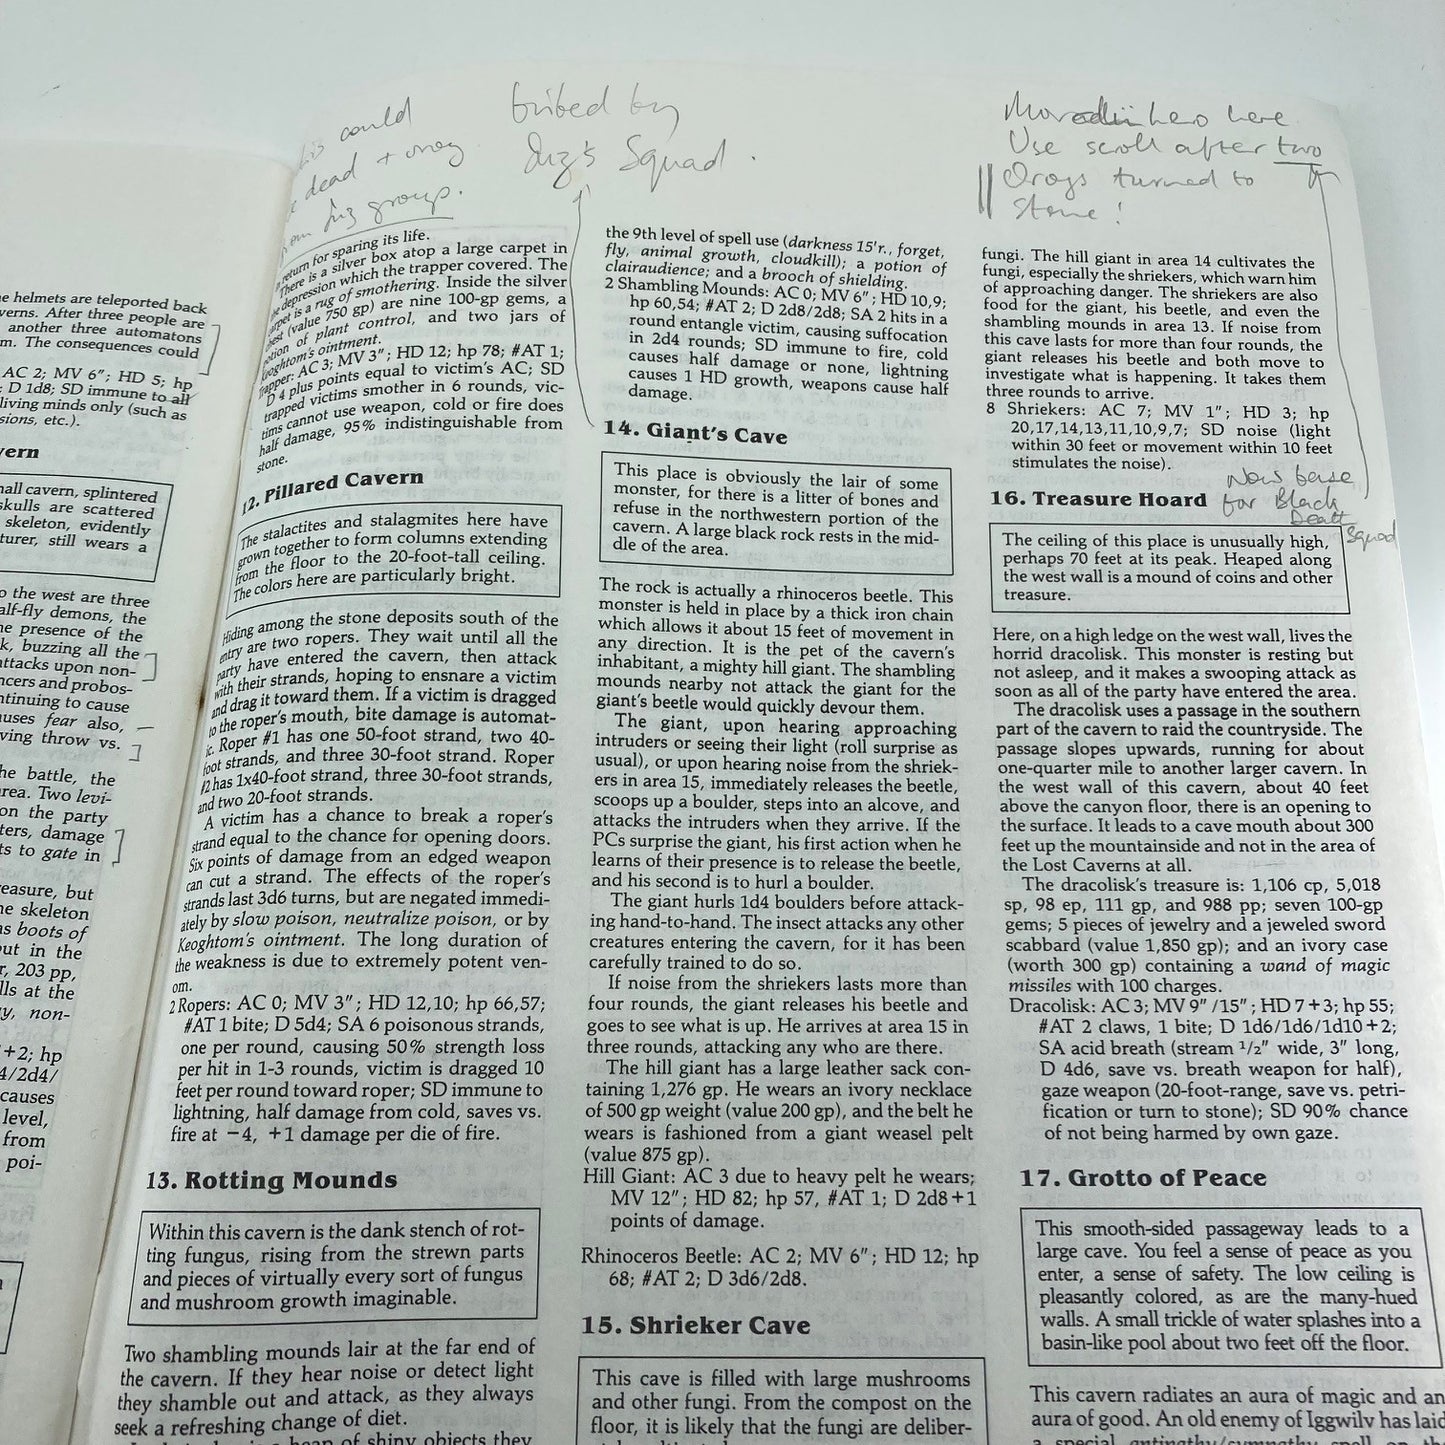 could
dead + 
group.
bribed by
Squad.
hero here
Use scroll after two
turned to
Stone!
e helmets are teleported back
verns. After three people are
another three automatons
m. The consequences could
AC 2; MV 6"; HD 5; hp
; D 1d8; SD immune to all
living minds only (such as
sions, etc.).
vern
nall cavern, splintered
skulls are scattered
skeleton, evidently
turer, still wears a
o the west are three
alf-fly demons, the
he presence of the
k, buzzing all the
attacks upon non-
ncers and probos-
ntinuing to cause
auses fear also,
ving throw vs.
he battle, the
rea. Two levi-
on the party
ters, damage
ts to gate in
reasure, but
he skeleton
as boots of
out in the
r, 203 pp,
lls at the
y, non-
+2; hp
4/2d4/
causes
level,
from
poi-
return for sparing its life.
There is a silver box atop a large carpet in
depression which the trapper covered. The
is a rug of smothering. Inside the silver
(value 750 gp) are nine 100-gp gems, a
potion of plant control, and two jars of
Keoghtom's ointment.
Trapper: AC 3; MV 3"; HD 12; hp 78; #AT 1;
D 4 plus points equal to victim's AC; SD
trapped victims smother in 6 rounds, vic-
tims cannot use weapon, cold or fire does
half damage, 95% indistinguishable from
stone.
12. Pillared Cavern
The stalactites and stalagmites here have
grown together to form columns extending
from the floor to the 20-foot-tall ceiling.
The colors here are particularly bright.
Hiding among the stone deposits south of the
entry are two ropers. They wait until all the
party have entered the cavern, then attack
with their strands, hoping to ensnare a victim
and drag it toward them. If a victim is dragged
to the roper's mouth, bite damage is automat-
ic. Roper #1 has one 50-foot strand, two 40-
foot strands, and three 30-foot strand. Roper
#2 has 1x40-foot strand, three 30-foot strands,
and two 20-foot strands.
A victim has a chance to break a roper's
strand equal to the chance for opening doors.
Six points of damage from an edged weapon
can cut a strand. The effects of the roper's
strands last 3d6 turns, but are negated immedi-
ately by slow poison, neutralize poison, or by
Keoghtom's ointment. The long duration of
the weakness is due to extremely potent ven-
om.
2 Ropers: AC 0; MV 3"; HD 12,10; hp 66,57;
#AT 1 bite; D 5d4; SA 6 poisonous strands,
one per round, causing 50% strength loss
per hit in 1-3 rounds, victim is dragged 10
feet per round toward roper; SD immune to
lightning, half damage from cold, saves vs.
fire at −4, +1 damage per die of fire.
13. Rotting Mounds
Within this cavern is the dank stench of rot-
ting fungus, rising from the strewn parts
and pieces of virtually every sort of fungus
and mushroom growth imaginable.
Two shambling mounds lair at the far end of
the cavern. If they hear noise or detect light
they shamble out and attack, as they always
seek a refreshing change of diet.
heap of shiny objects they
the 9th level of spell use (darkness 15'r., forget,
fly, animal growth, cloudkill); a potion of
clairaudience; and a brooch of shielding.
2 Shambling Mounds: AC 0; MV 6"; HD 10,9;
hp 60,54; #AT 2; D 2d8/2d8; SA 2 hits in a
round entangle victim, causing suffocation
in 2d4 rounds; SD immune to fire, cold
causes half damage or none, lightning
causes 1 HD growth, weapons cause half
damage.
14. Giant's Cave
This place is obviously the lair of some
monster, for there is a litter of bones and
refuse in the northwestern portion of the
cavern. A large black rock rests in the mid-
dle of the area.
The rock is actually a rhinoceros beetle. This
monster is held in place by a thick iron chain
which allows it about 15 feet of movement in
any direction. It is the pet of the cavern's
inhabitant, a mighty hill giant. The shambling
mounds nearby not attack the giant for the
giant's beetle would quickly devour them.
The giant, upon hearing approaching
intruders or seeing their light (roll surprise as
usual), or upon hearing noise from the shriek-
ers in area 15, immediately releases the beetle,
scoops up a boulder, steps into an alcove, and
attacks the intruders when they arrive. If the
PCs surprise the giant, his first action when he
learns of their presence is to release the beetle,
and his second is to hurl a boulder.
The giant hurls 1d4 boulders before attack-
ing hand-to-hand. The insect attacks any other
creatures entering the cavern, for it has been
carefully trained to do so.
If noise from the shriekers lasts more than
four rounds, the giant releases his beetle and
goes to see what is up. He arrives at area 15 in
three rounds, attacking any who are there.
The hill giant has a large leather sack con-
taining 1,276 gp. He wears an ivory necklace
of 500 gp weight (value 200 gp), and the belt he
wears is fashioned from a giant weasel pelt
(value 875 gp).
Hill Giant: AC 3 due to heavy pelt he wears;
MV 12"; HD 82; hp 57, #AT 1; D 2d8+1
points of damage.
Rhinoceros Beetle: AC 2; MV 6"; HD 12; hp
68; #AT 2; D 3d6/2d8.
15. Shrieker Cave
This cave is filled with large mushrooms
and other fungi. From the compost on the
floor, it is likely that the fungi are deliber-
fungi. The hill giant in area 14 cultivates the
fungi, especially the shriekers, which warn him
of approaching danger. The shriekers are also
food for the giant, his beetle, and even the
shambling mounds in area 13. If noise from
this cave lasts for more than four rounds, the
giant releases his beetle and both move to
investigate what is happening. It takes them
three rounds to arrive.
8 Shriekers: AC 7; MV 1"; HD 3; hp
20,17,14,13,11,10,9,7; SD noise (light
within 30 feet or movement within 10 feet
stimulates the noise).
16. Treasure Hoard
Now base
for Black
Death
Squad
The ceiling of this place is unusually high,
perhaps 70 feet at its peak. Heaped along
the west wall is a mound of coins and other
treasure.
Here, on a high ledge on the west wall, lives the
horrid dracolisk. This monster is resting but
not asleep, and it makes a swooping attack as
soon as all of the party have entered the area.
The dracolisk uses a passage in the southern
part of the cavern to raid the countryside. The
passage slopes upwards, running for about
one-quarter mile to another larger cavern. In
the west wall of this cavern, about 40 feet
above the canyon floor, there is an opening to
the surface. It leads to a cave mouth about 300
feet up the mountainside and not in the area of
the Lost Caverns at all.
The dracolisk's treasure is: 1,106 cp, 5,018
sp, 98 ep, 111 gp, and 988 pp; seven 100-gp
gems; 5 pieces of jewelry and a jeweled sword
scabbard (value 1,850 gp); and an ivory case
(worth 300 gp) containing a wand of magic
missiles with 100 charges.
Dracolisk: AC 3; MV 9"/15"; HD 7+3; hp 55;
#AT 2 claws, 1 bite; D 1d6/1d6/1d10+2;
SA acid breath (stream 1/2" wide, 3" long,
D 4d6, save vs. breath weapon for half),
gaze weapon (20-foot-range, save vs. petri-
fication or turn to stone); SD 90% chance
of not being harmed by own gaze.
17. Grotto of Peace
This smooth-sided passageway leads to a
large cave. You feel a sense of peace as you
enter, a sense of safety. The low ceiling is
pleasantly colored, as are the many-hued
walls. A small trickle of water splashes into a
basin-like pool about two feet off the floor.
This cavern radiates an aura of magic and an
aura of good. An old enemy of Iggwilv has laid
a special antipathy/sympathy spell